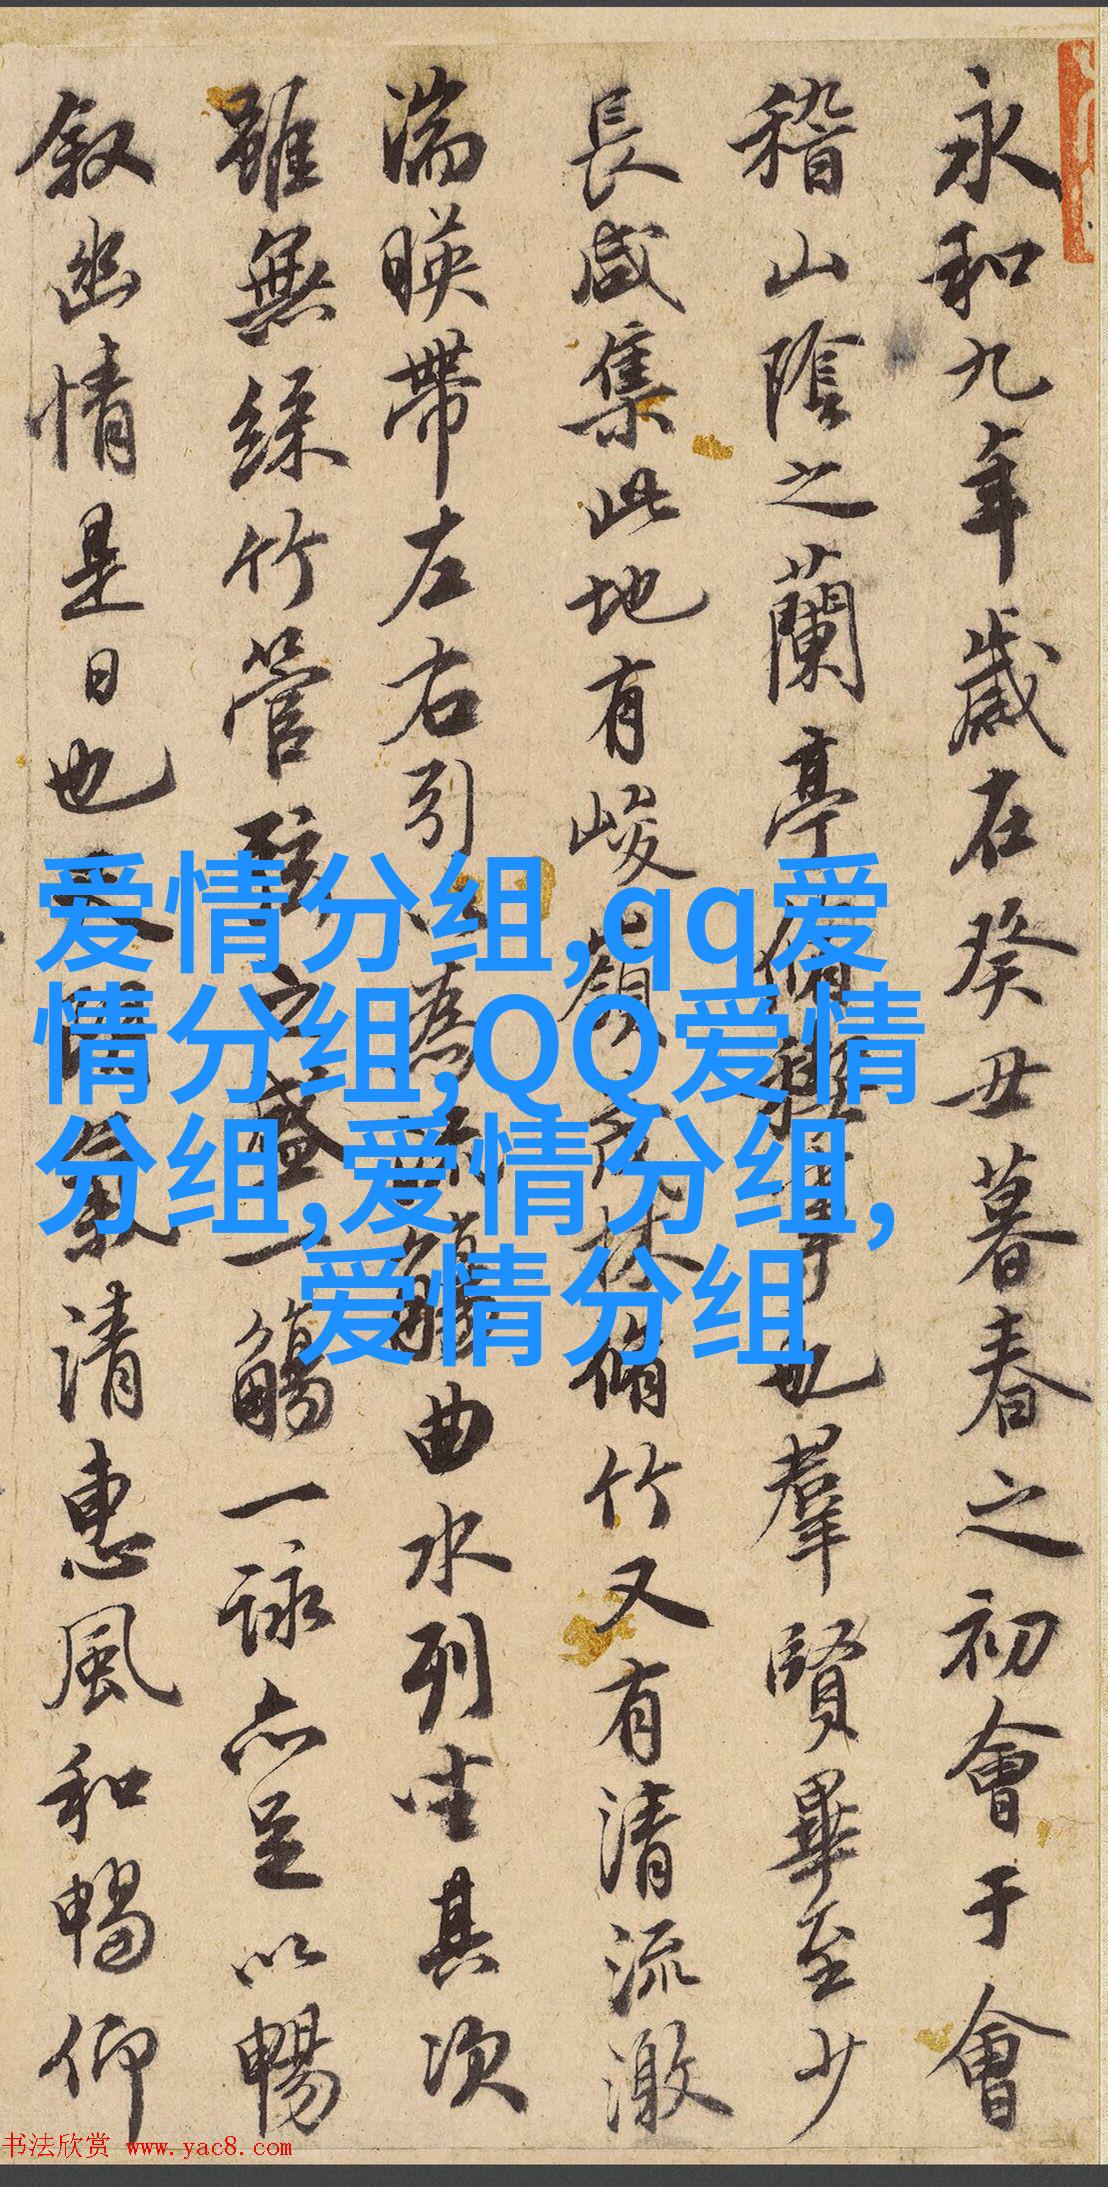 永和九年歲在癸丑暮春之初會于會
稽山陰之蘭亭脩稧事也羣賢畢至少
長咸集此地有峻嶺茂林脩竹又有清流激
湍暎帶左右引以為流觴曲水列坐其次
雖無絲竹管弦之盛一觴一詠亦足以暢
叙幽情是日也天朗氣清惠風和暢仰
爱情分组,qq爱
情分组,QQ爱情
分组,爱情分组,
爱情分组
书法欣赏 www.yac8.com